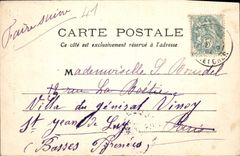 Faire suivre 41
CARTE POSTALE
Ce côté est exclusivement réservé à l'adresse
Mademoiselle S. Bourdel
rue La Boétie
Villa du général Vinoy
St Jean de Luz Paris
(Basses Pyrénées)